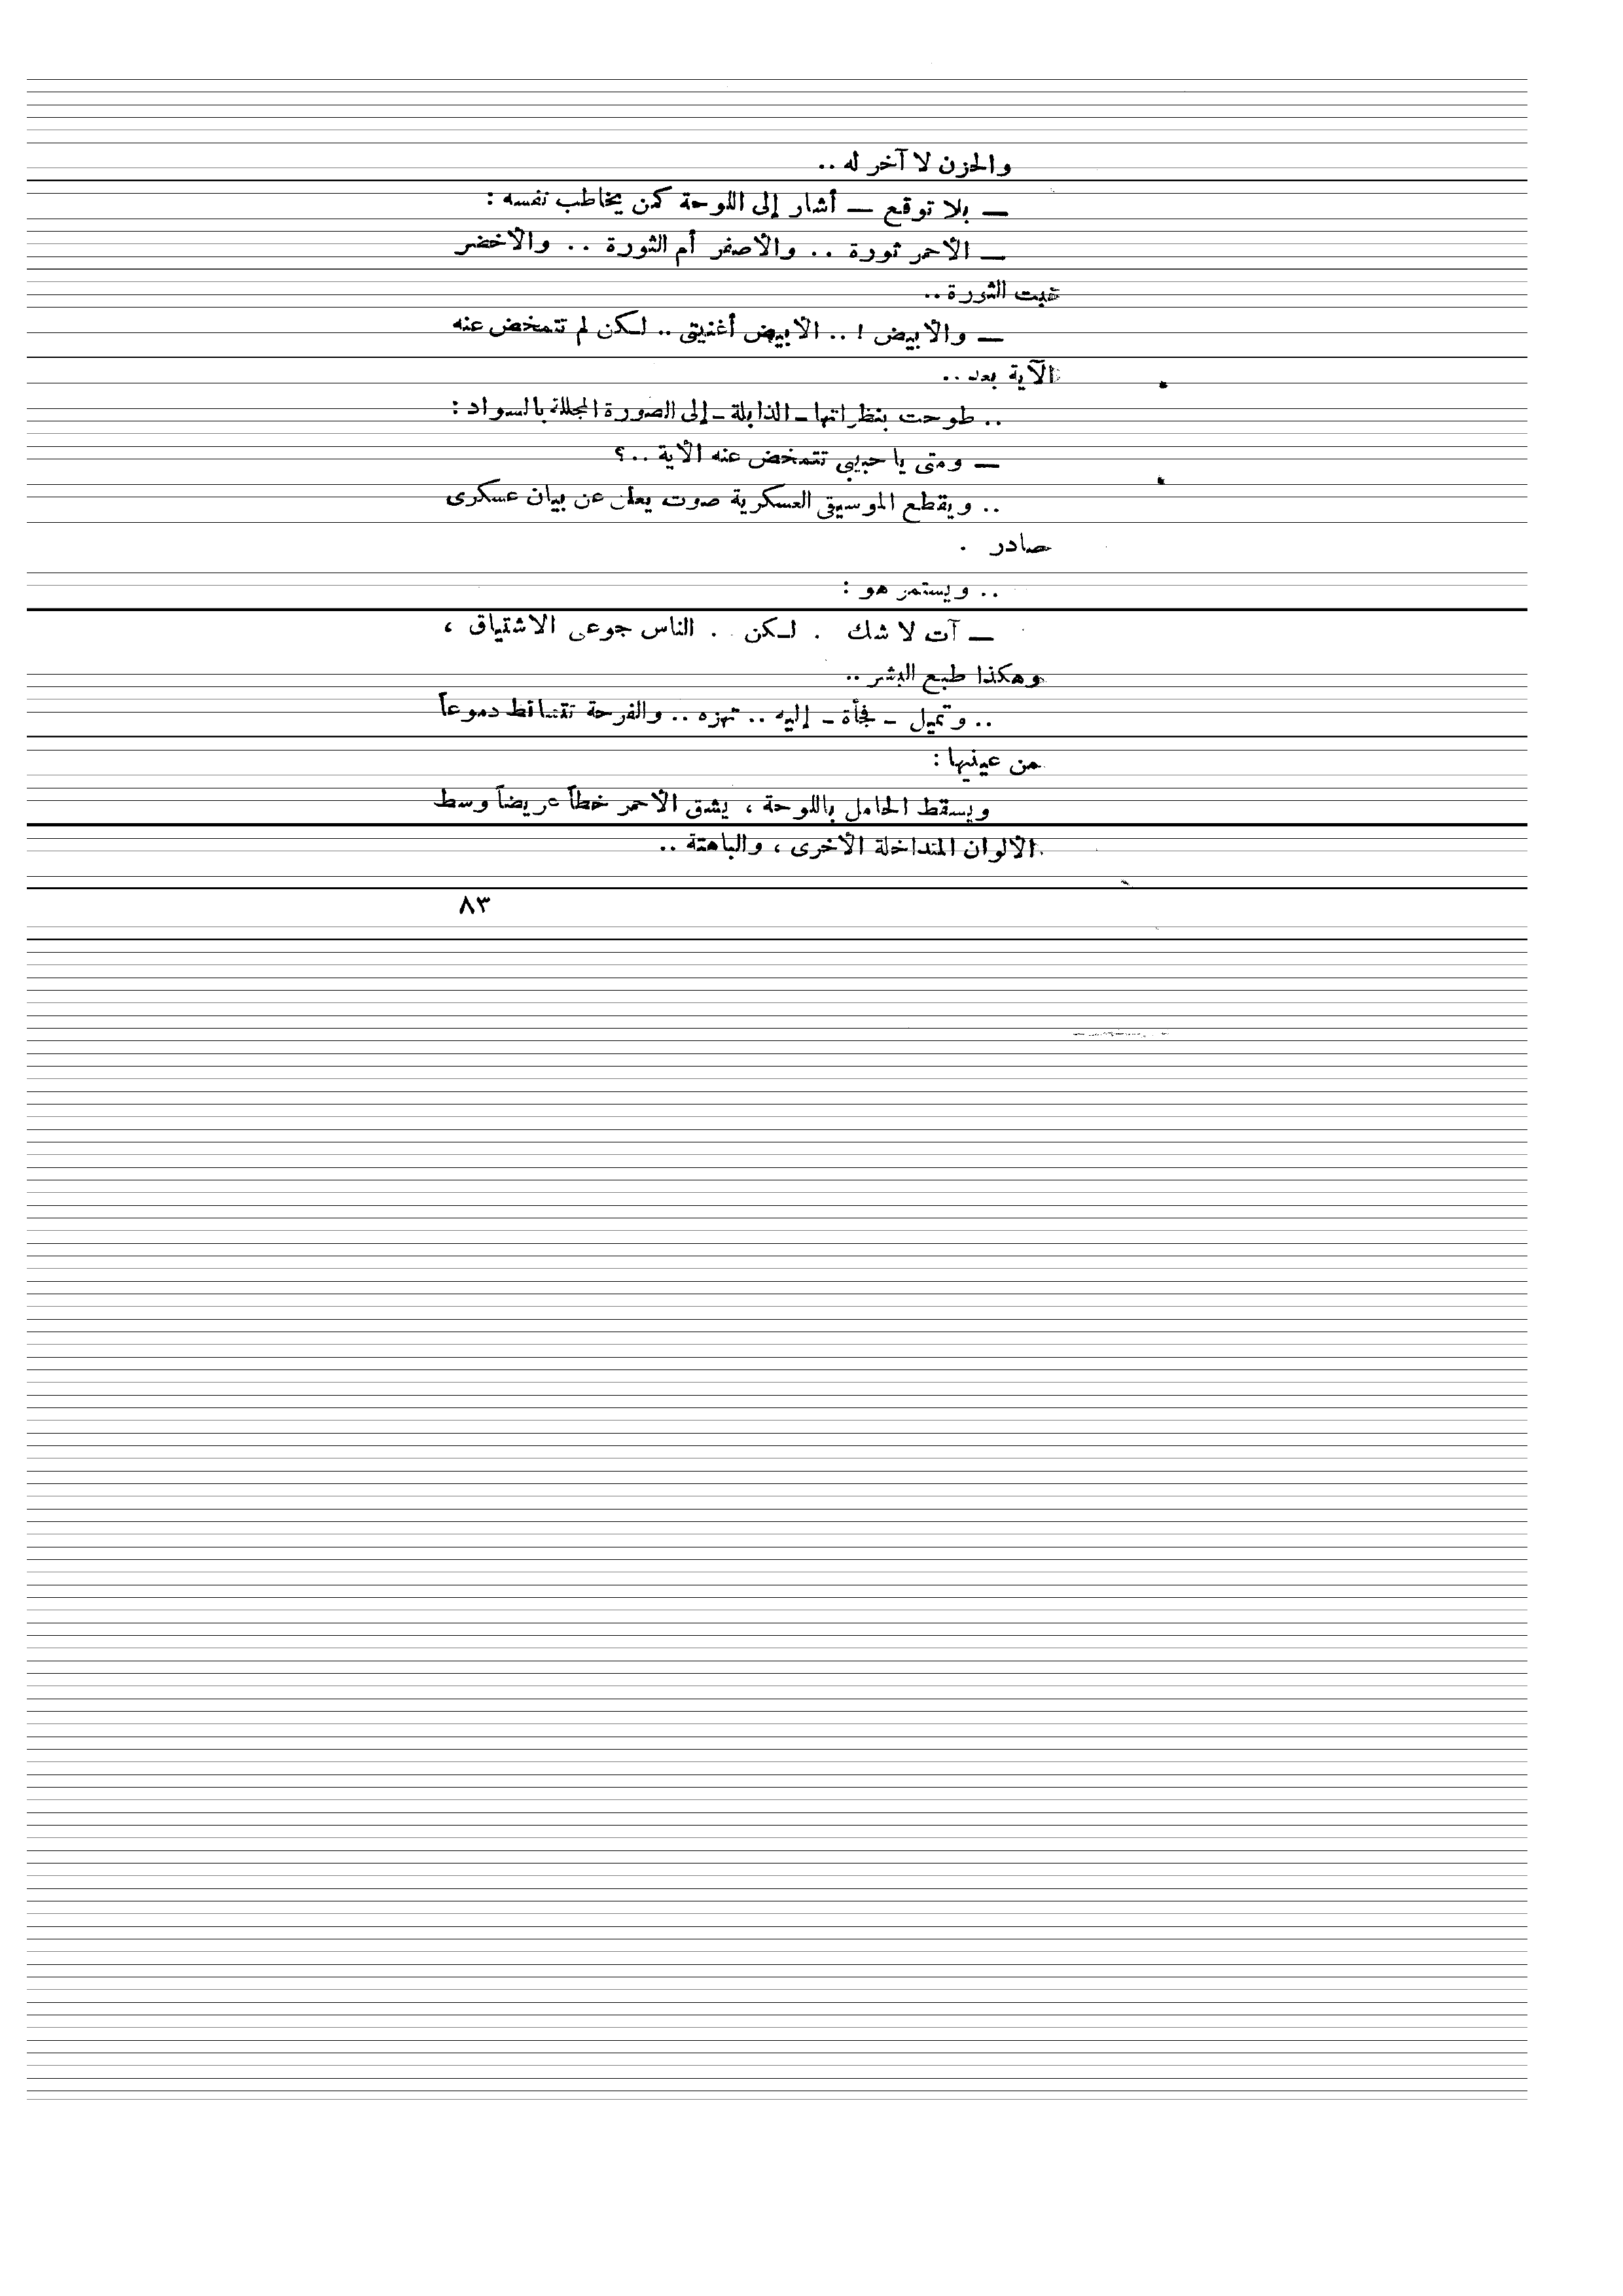 والحزن لا آخر له ..
— بلا توقع — أشار إلى اللوحة كمن يخاطب نفسه :
— الأحمر ثورة .. والأصفر أم الثورة .. والأخضر
الثورة ..
— والأبيض ! .. الأبيض أغنيتى .. لكن لم تتمخض عنه
الآية بعد ..
.. طوحت بنظراتها - الذابلة - إلى الصورة المجللة بالسواد :
— ومتى يا حبيبى تتمخض عنه الآية ..؟
.. ويقطع الموسيقى العسكرية صوت يعلن عن بيان عسكرى
صادر .
.. ويستمر هو :
— آت لا شك . لكن . . الناس جوعى الاشتياق ،
وهكذا طبع البشر ..
.. وتميل - فجأة - إليه .. تهزه .. والفرحة تتساقط دموعاً
من عينيها :
ويسقط الحامل باللوحة ، يشق الأحمر خطاً عريضاً وسط
الألوان المتداخلة الأخرى ، والباهتة ..
٨٣